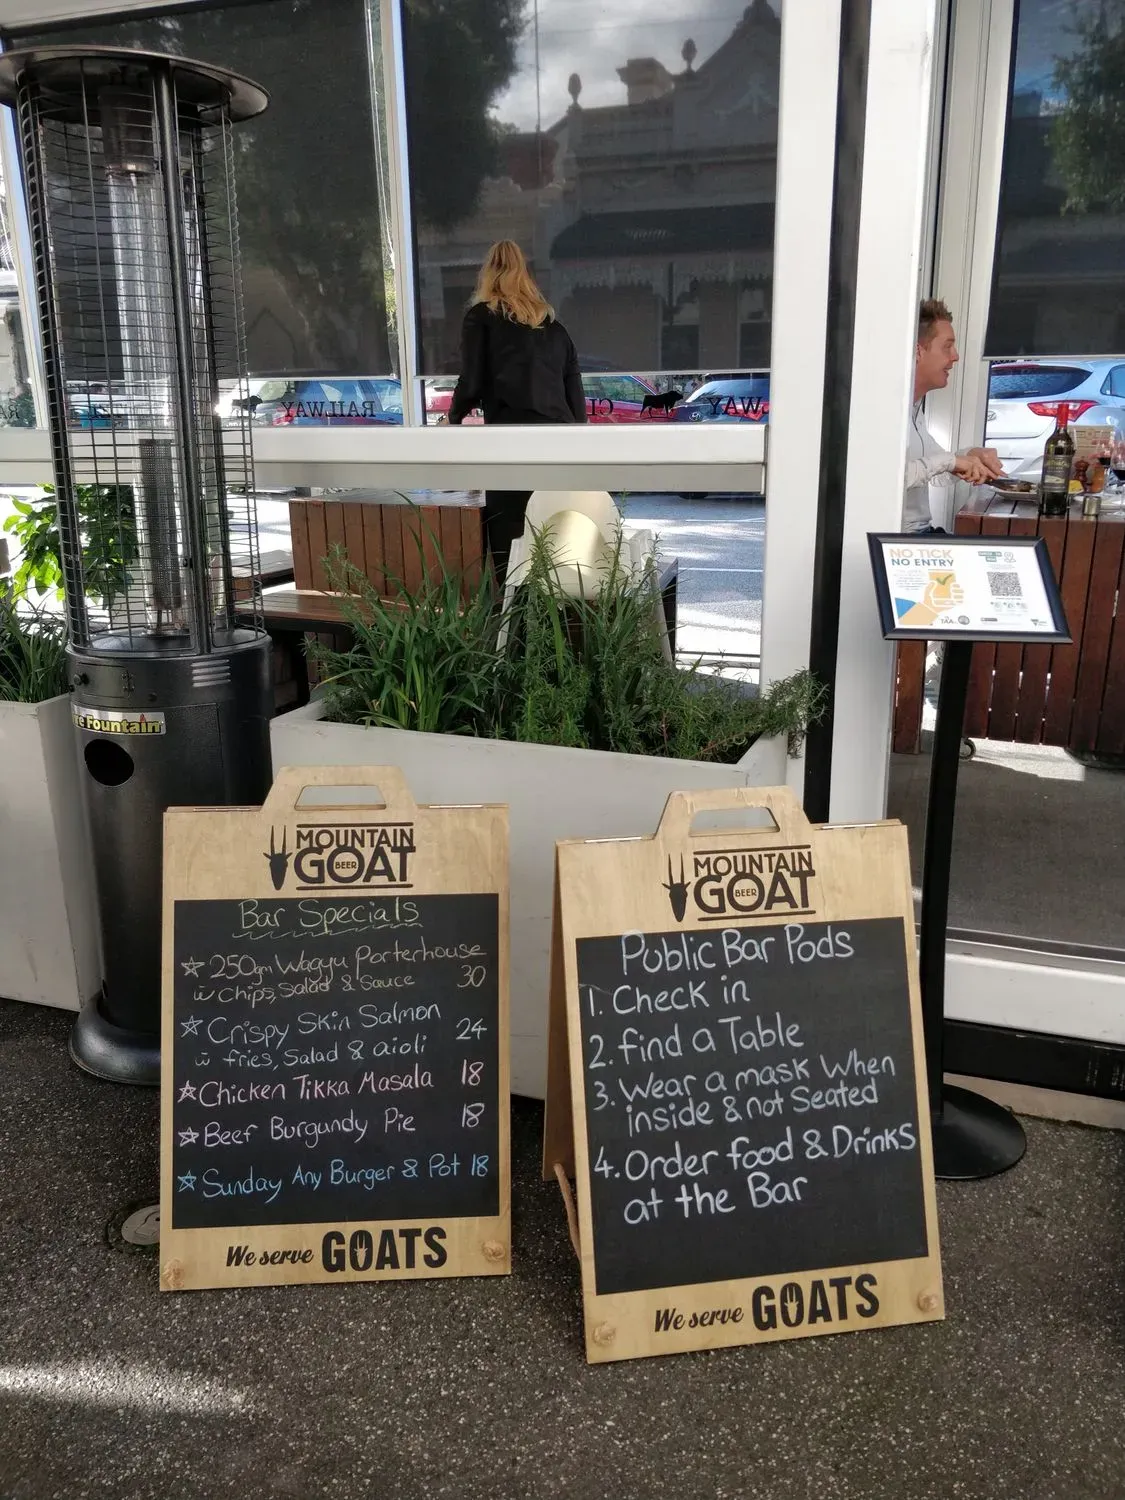 RAILWAY
CL
WAY
NO TICK
NO ENTRY
TAA
Fountain
MOUNTAIN
GOAT
BEER
Bar Specials
☆ 250gm Wagyu Porterhouse
w Chips, Salad & Sauce 30
☆ Crispy Skin Salmon
w fries, Salad & aioli 24
☆ Chicken Tikka Masala 18
☆ Beef Burgundy Pie 18
☆ Sunday Any Burger & Pot 18
We serve GOATS
MOUNTAIN
GOAT
BEER
Public Bar Pods
1. Check in
2. find a Table
3. Wear a mask When
inside & not Seated
4. Order food & Drinks
at the Bar
We serve GOATS